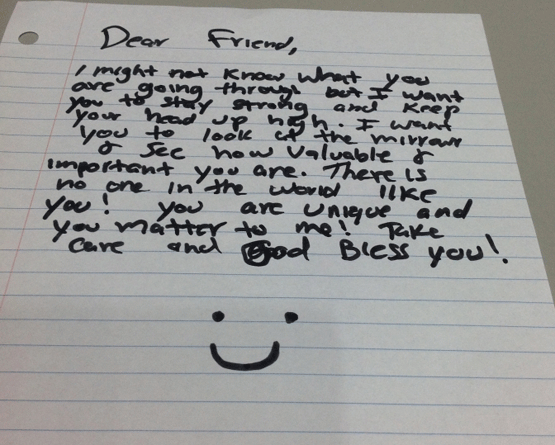 Dear Friend,
I might not know what you
are going through but I want
you to stay strong and keep
your head up high. I want
you to look at the mirrow
& see how valuable &
important you are. There is
no one in the world like
you! you are unique and
you matter to me! Take
care and God Bless you!